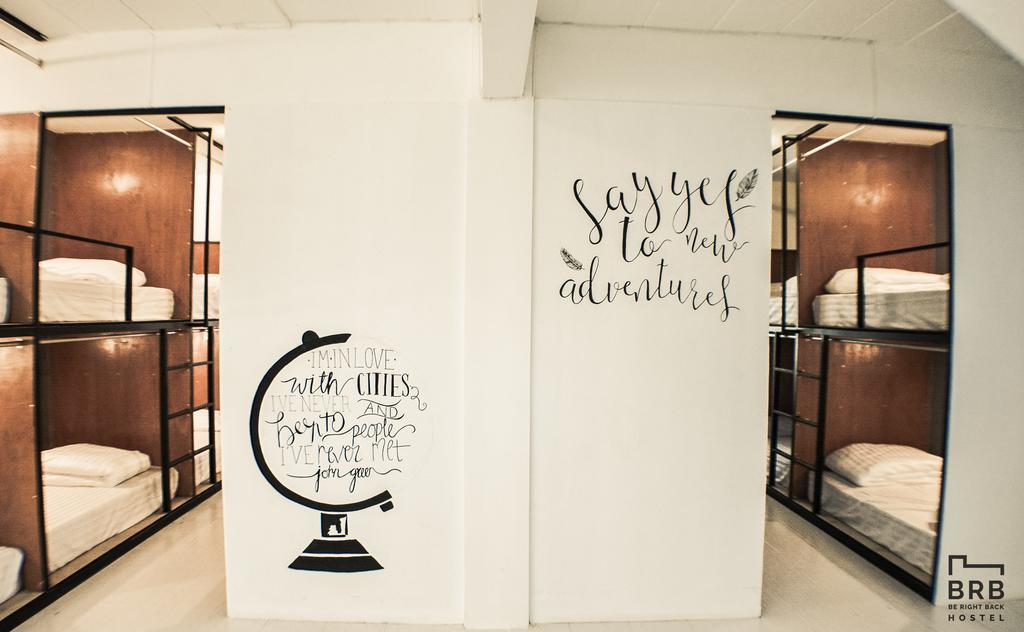 ·I'M IN LOVE·
with CITIES
I'VE NEVER AND
been to people
I'VE never MET
john green
say yes
to new
adventures
BRB
BE RIGHT BACK
HOSTEL